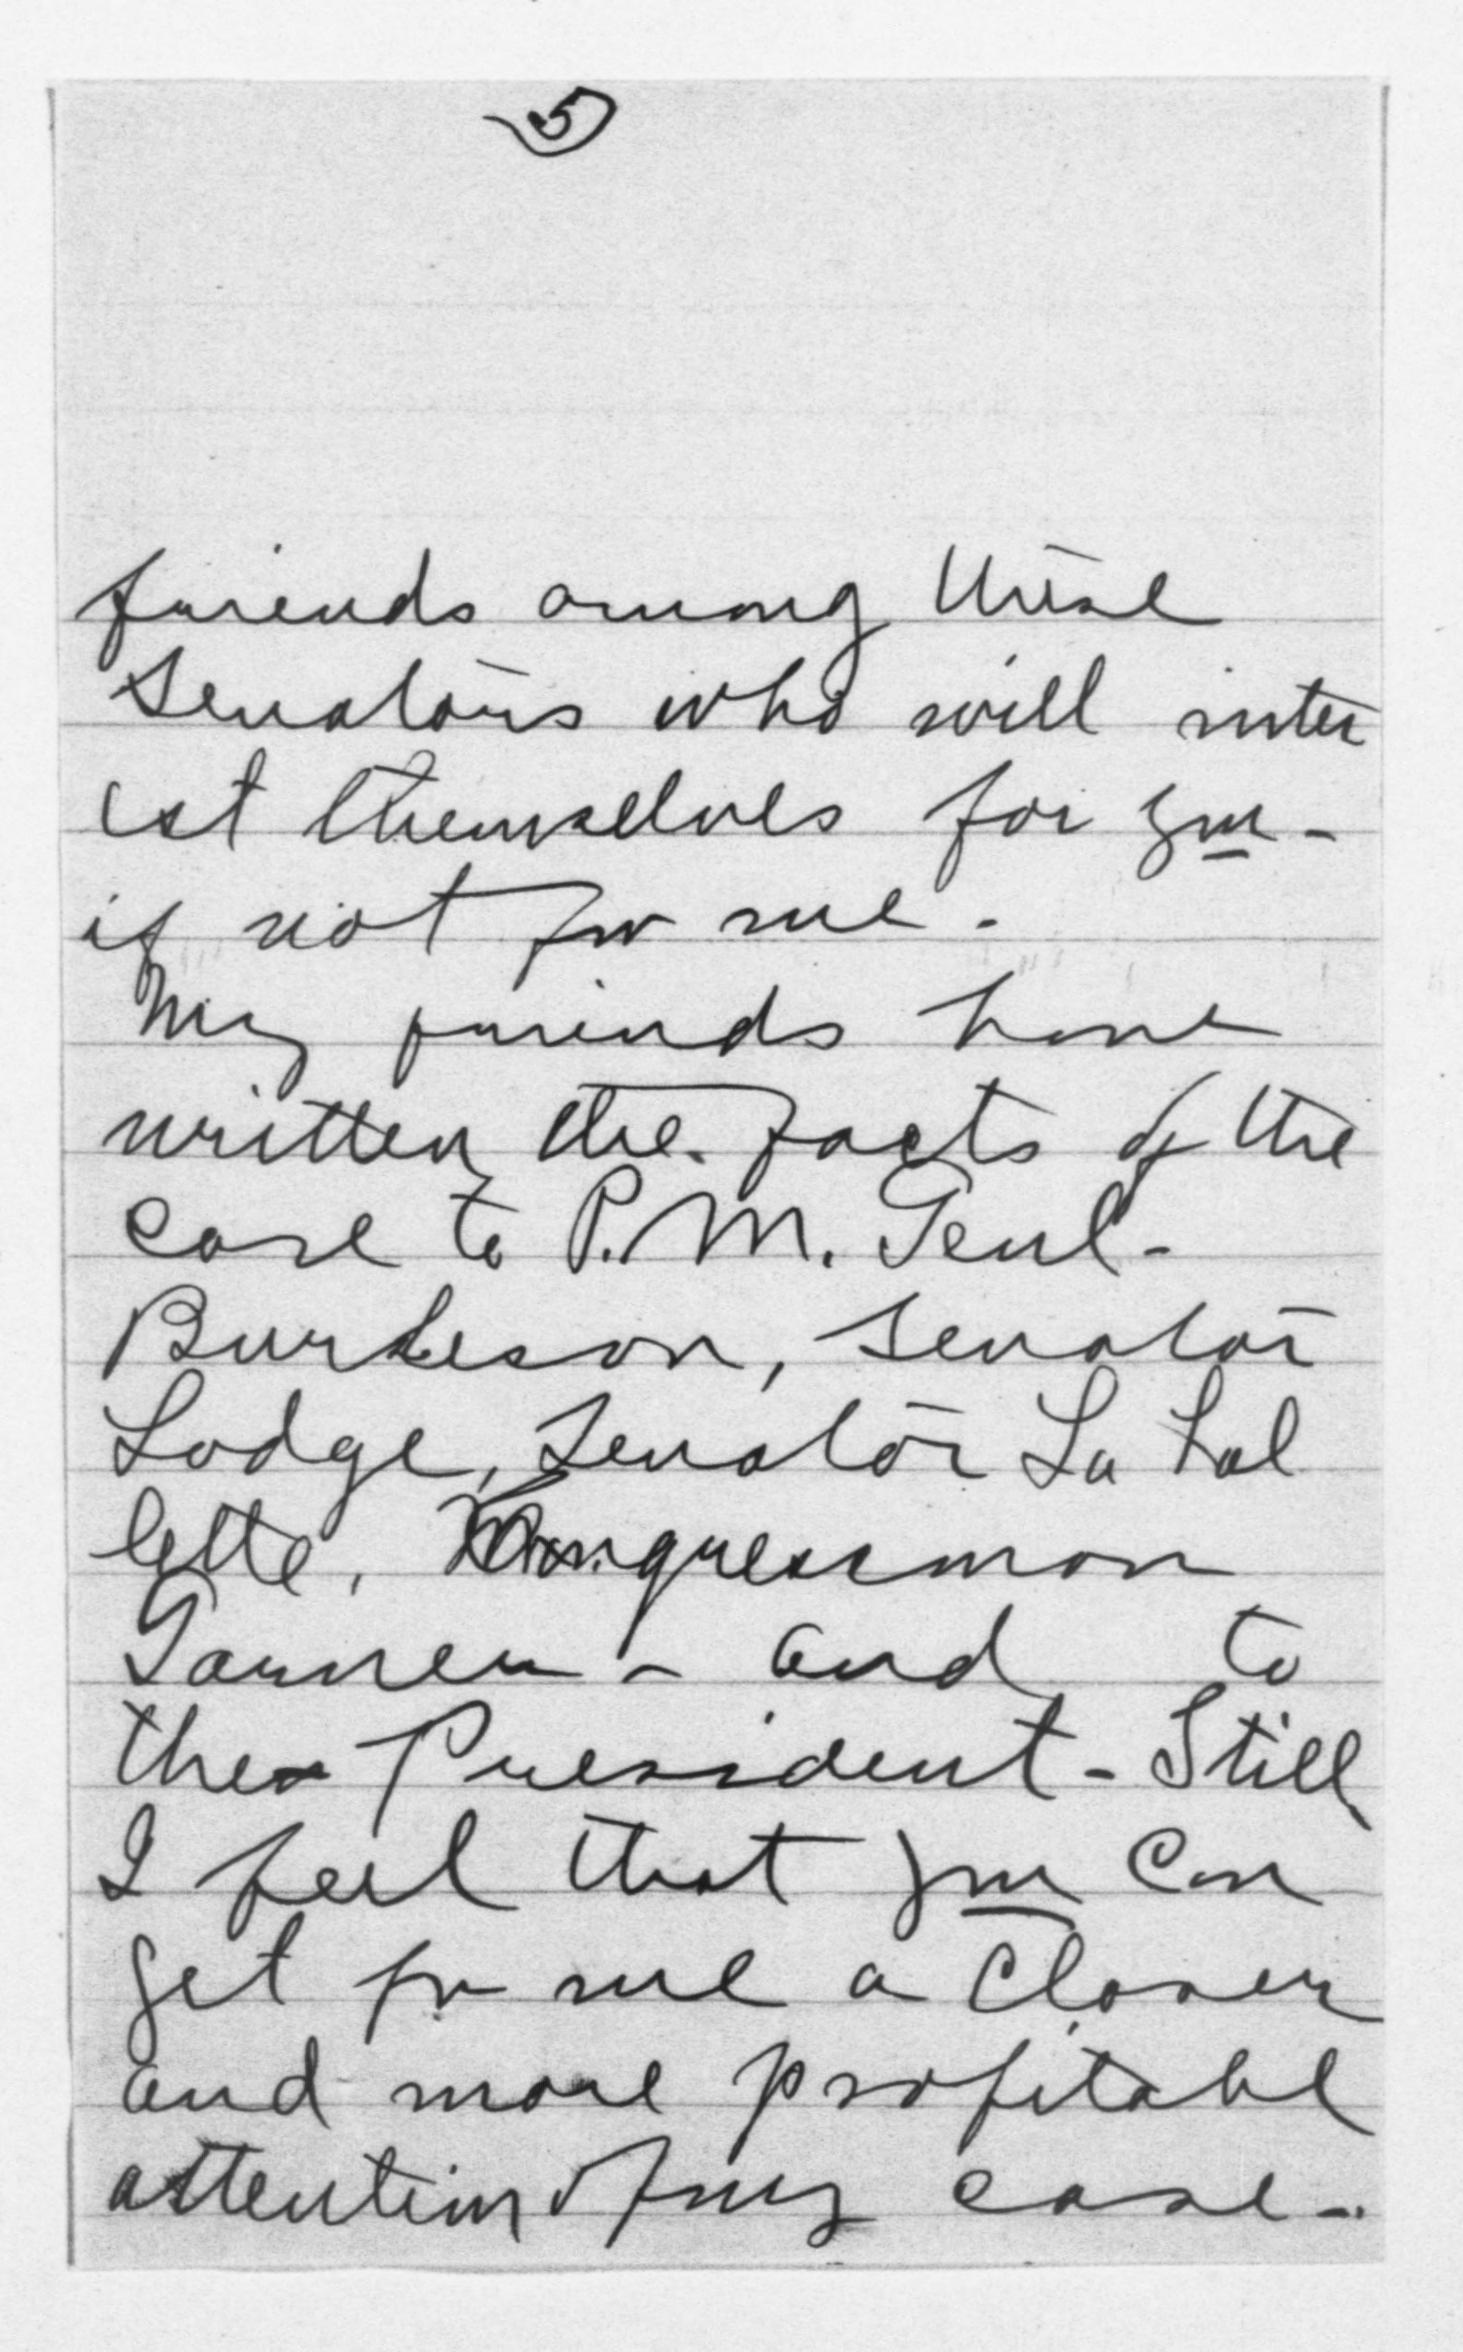 5
friends among these
Senators who will inter
est themselves for you -
if not for me.
My friends have
written the facts of the
case to P.M. Genl -
Burleson, Senator
Lodge, Senator La Fol
lette, Congressman
Garner - and to
the President - Still
I feel that you can
get for me a closer
and more profitable
attention of my case -